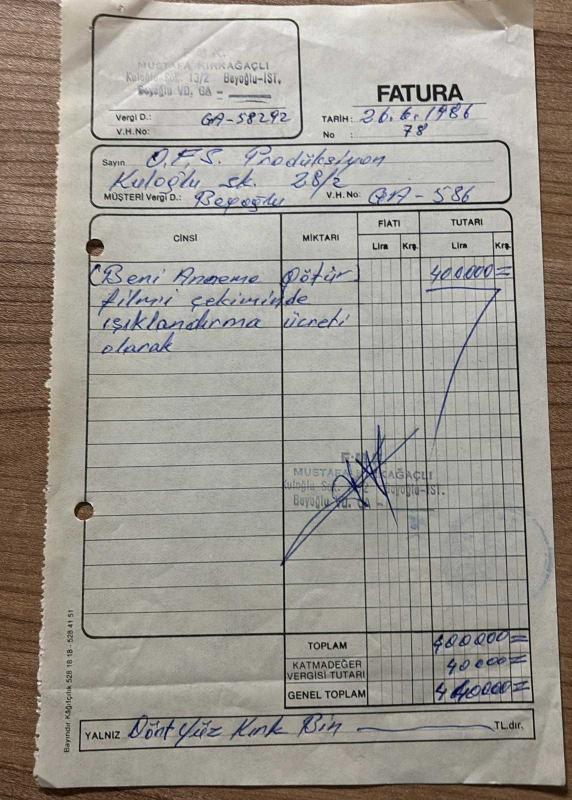 F.M.K.
MUSTAFA KIRKAĞAÇLI
Kuloğlu Sok. 13/2 Beyoğlu-İST.
Beyoğlu VD. GA -
Vergi D.: GA-58292
V.H. No:
FATURA
TARİH: 26.6.1986
No : 78
Sayın O.F.S. Prodüksiyon
Kuloğlu sk. 28/2
MÜŞTERİ Vergi D.: Beyoğlu V.H. No: GA-586
CİNSİ MİKTARI FİATI TUTARI
Lira Krş. Lira Krş.
(Beni Anneme Götür) 400000=
filmi çekiminde
ışıklandırma ücreti
olarak
MUSTAFA KIRKAĞAÇLI
Kuloğlu Sok. Beyoğlu-İST.
Beyoğlu VD. GA -
TOPLAM 400000=
KATMADEĞER VERGİSİ TUTARI 40000=
GENEL TOPLAM 440000=
YALNIZ Dört Yüz Kırk Bin TL.dır.
Bayındır Kâğıtçılık 528 18 18 - 528 41 51